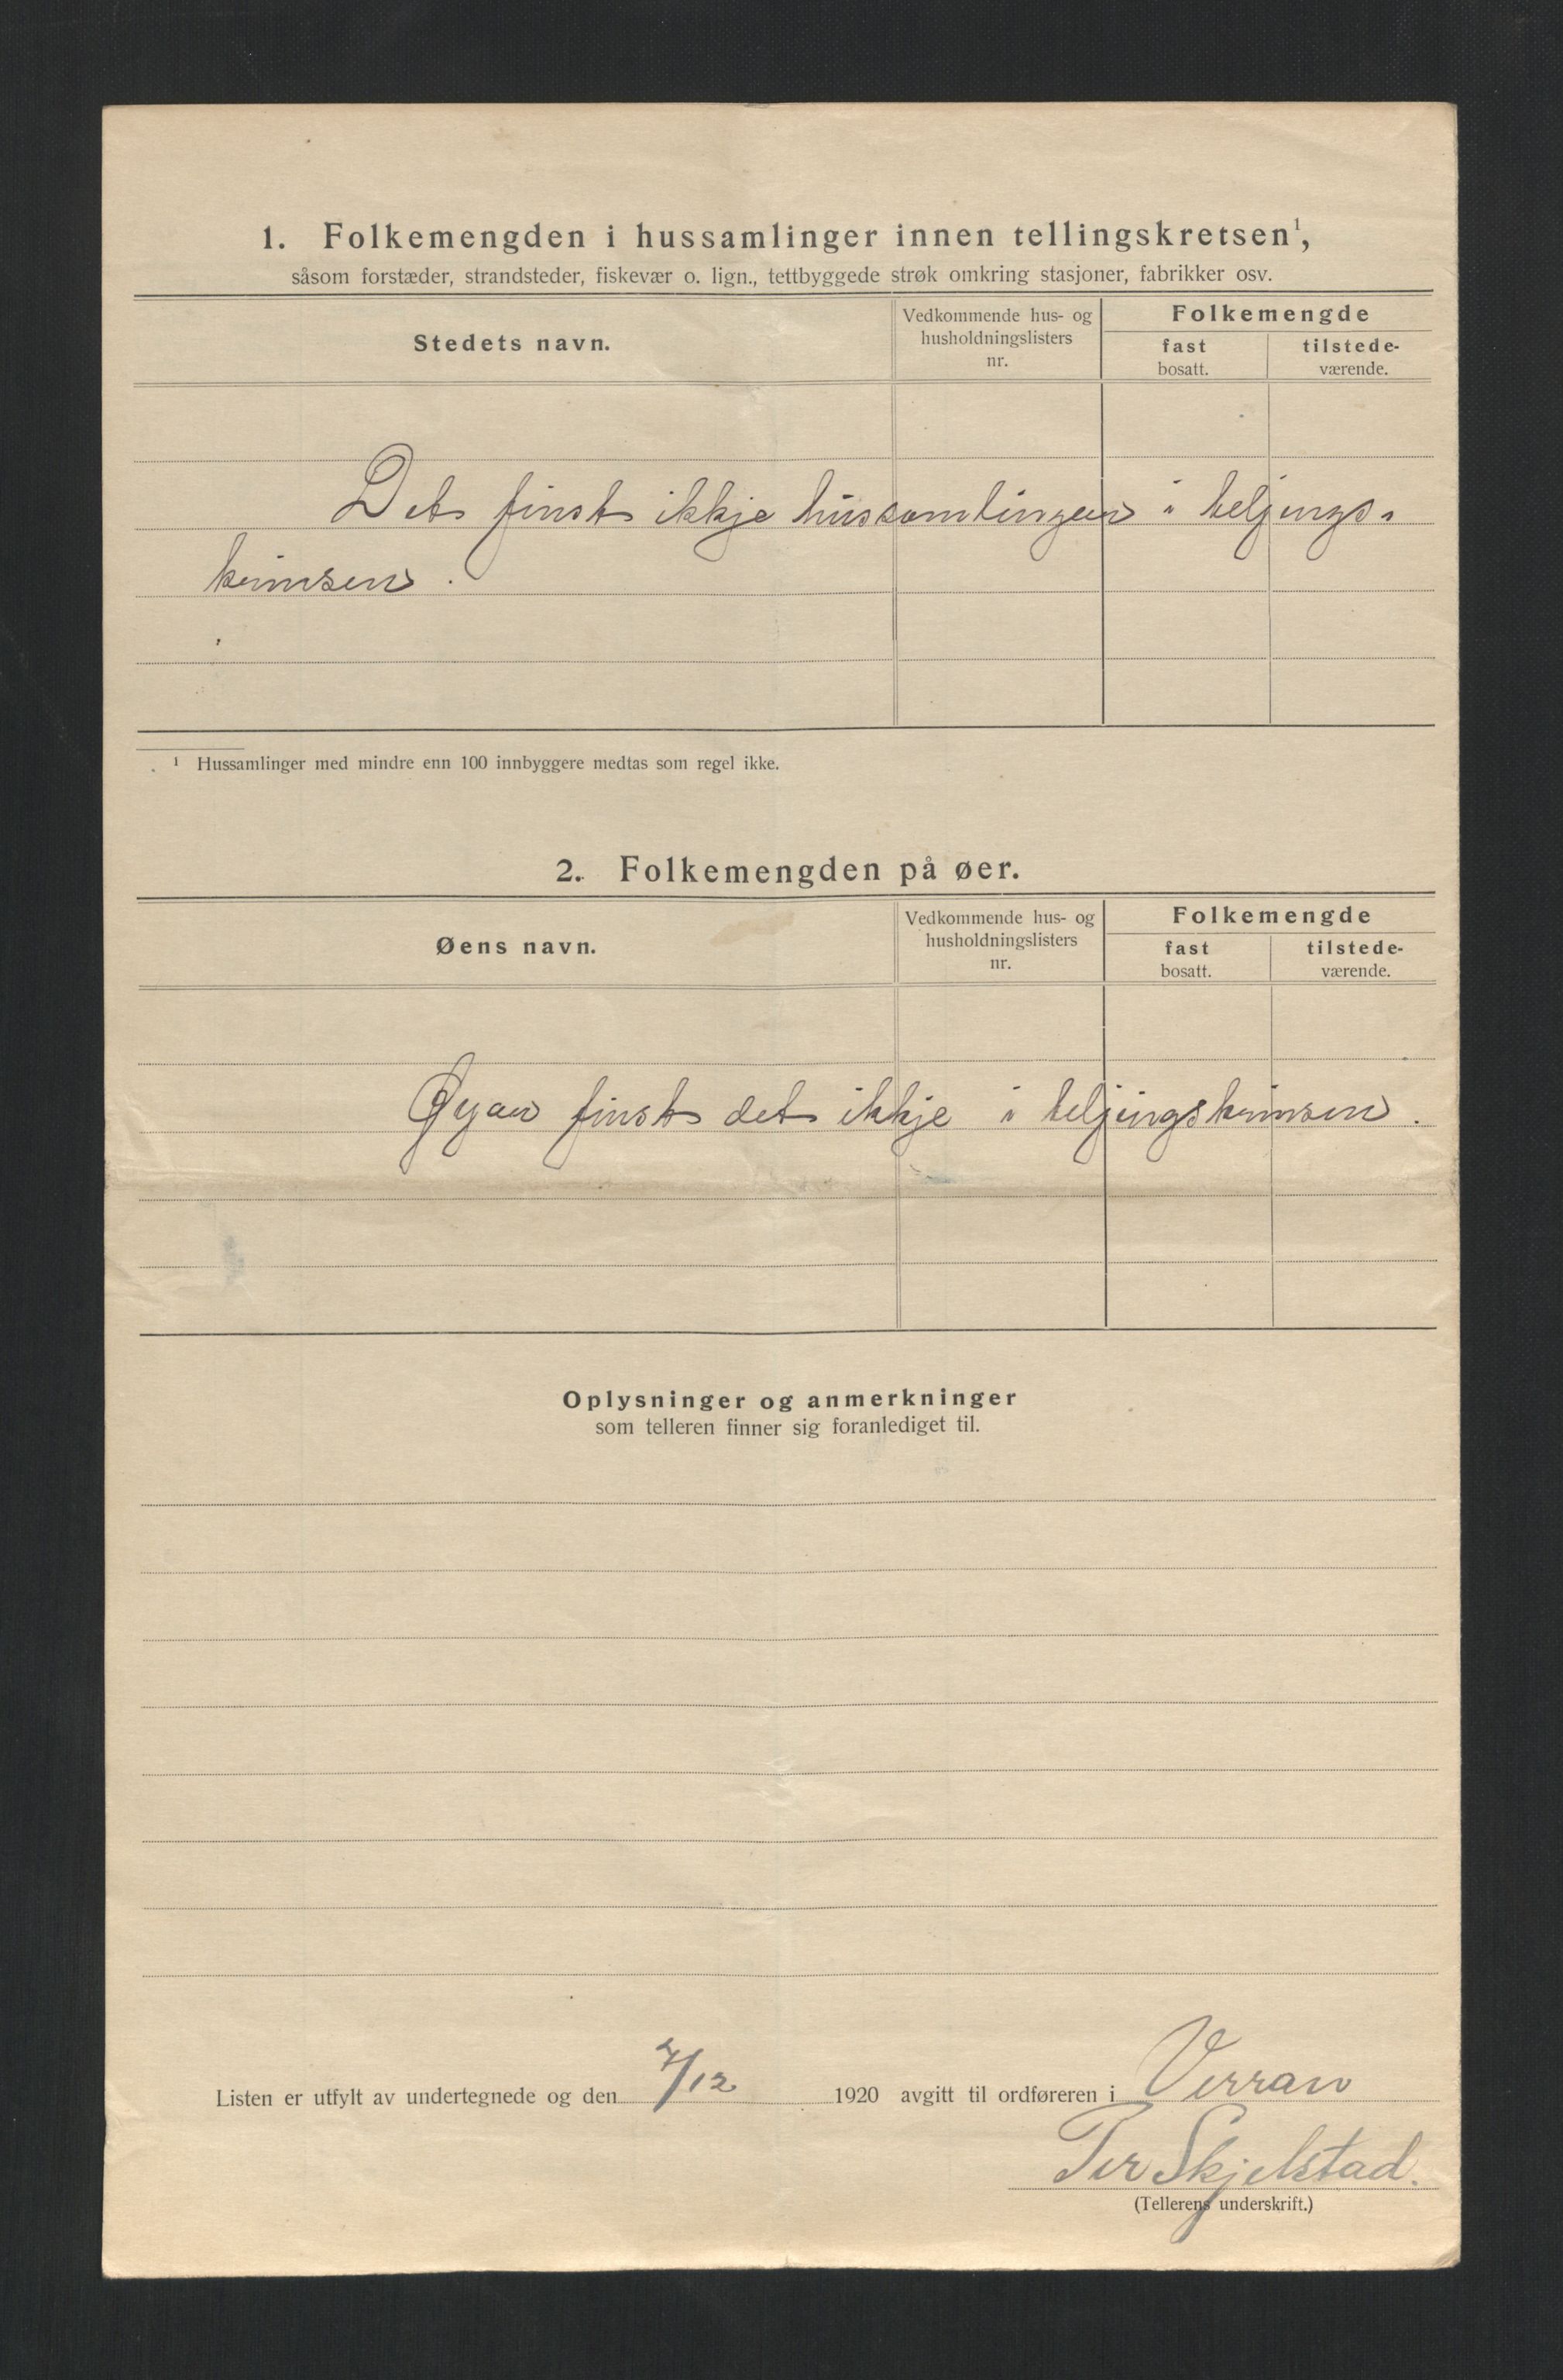 1. Folkemengden i hussamlinger innen tellingskretsen¹,
såsom forstæder, strandsteder, fiskevær o. lign., tettbyggede strøk omkring stasjoner, fabrikker osv.
Stedets navn.
Vedkommende hus- og
husholdningslisters
nr.
Folkemengde
fast
bosatt.
tilstede-
værende.
Det finst ikkje hussamlingar i teljings-
krinsen.
¹ Hussamlinger med mindre enn 100 innbyggere medtas som regel ikke.
2. Folkemengden på øer.
Øens navn.
Vedkommende hus- og
husholdningslisters
nr.
Folkemengde
fast
bosatt.
tilstede-
værende.
Øyar finst det ikkje i teljingskrinsen.
Oplysninger og anmerkninger
som telleren finner sig foranlediget til.
Listen er utfylt av undertegnede og den /12 1920 avgitt til ordføreren i Verran
Per Skjelstad.
(Tellerens underskrift.)